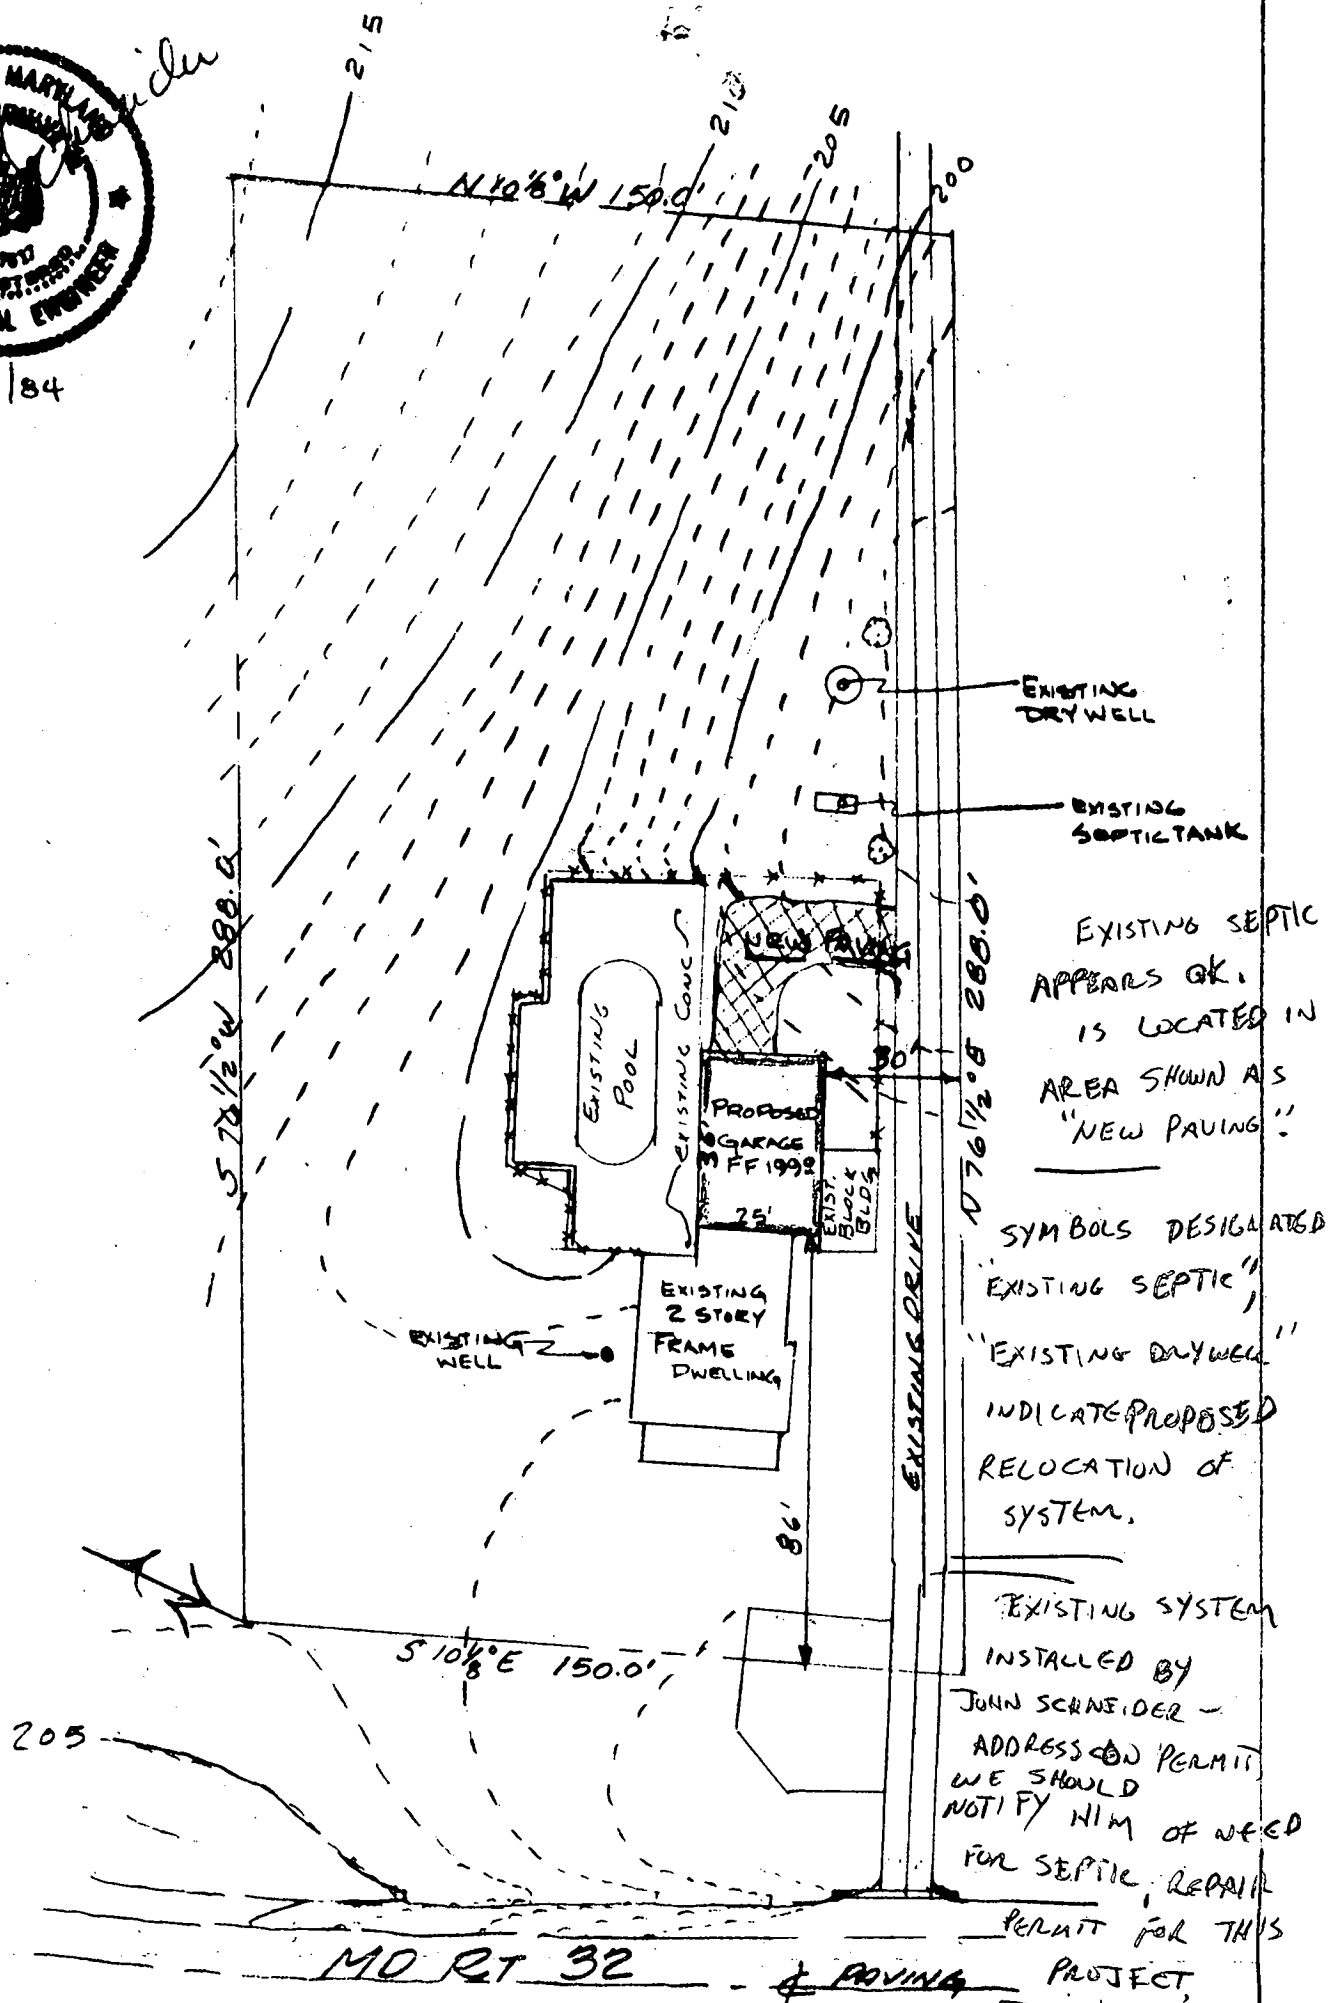 215
210
205
200
MARYLAND
ENGINEER
/84
N 10 1/8° W 150.0'
EXISTING
DRYWELL
EXISTING
SEPTIC TANK
S 76 1/2° W 288.0'
N 76 1/2° E 288.0'
NEW PAVING
EXISTING
POOL
EXISTING CONC
30'
PROPOSED
GARAGE
FF 199
36'
25'
EXIST.
BLOCK
BLDG
EXISTING DRIVE
EXISTING
2 STORY
FRAME
DWELLING
EXISTING
WELL
86'
S 10 1/8° E 150.0'
205
MD RT 32
℄ PAVING
EXISTING SEPTIC
APPEARS OK.
IS LOCATED IN
AREA SHOWN AS
"NEW PAVING."
SYMBOLS DESIGNATED
"EXISTING SEPTIC",
"EXISTING DRYWELL"
INDICATE PROPOSED
RELOCATION OF
SYSTEM.
EXISTING SYSTEM
INSTALLED BY
JOHN SCHNEIDER -
ADDRESS ON PERMIT
WE SHOULD
NOTIFY HIM OF NEED
FOR SEPTIC REPAIR
PERMIT FOR THIS
PROJECT.